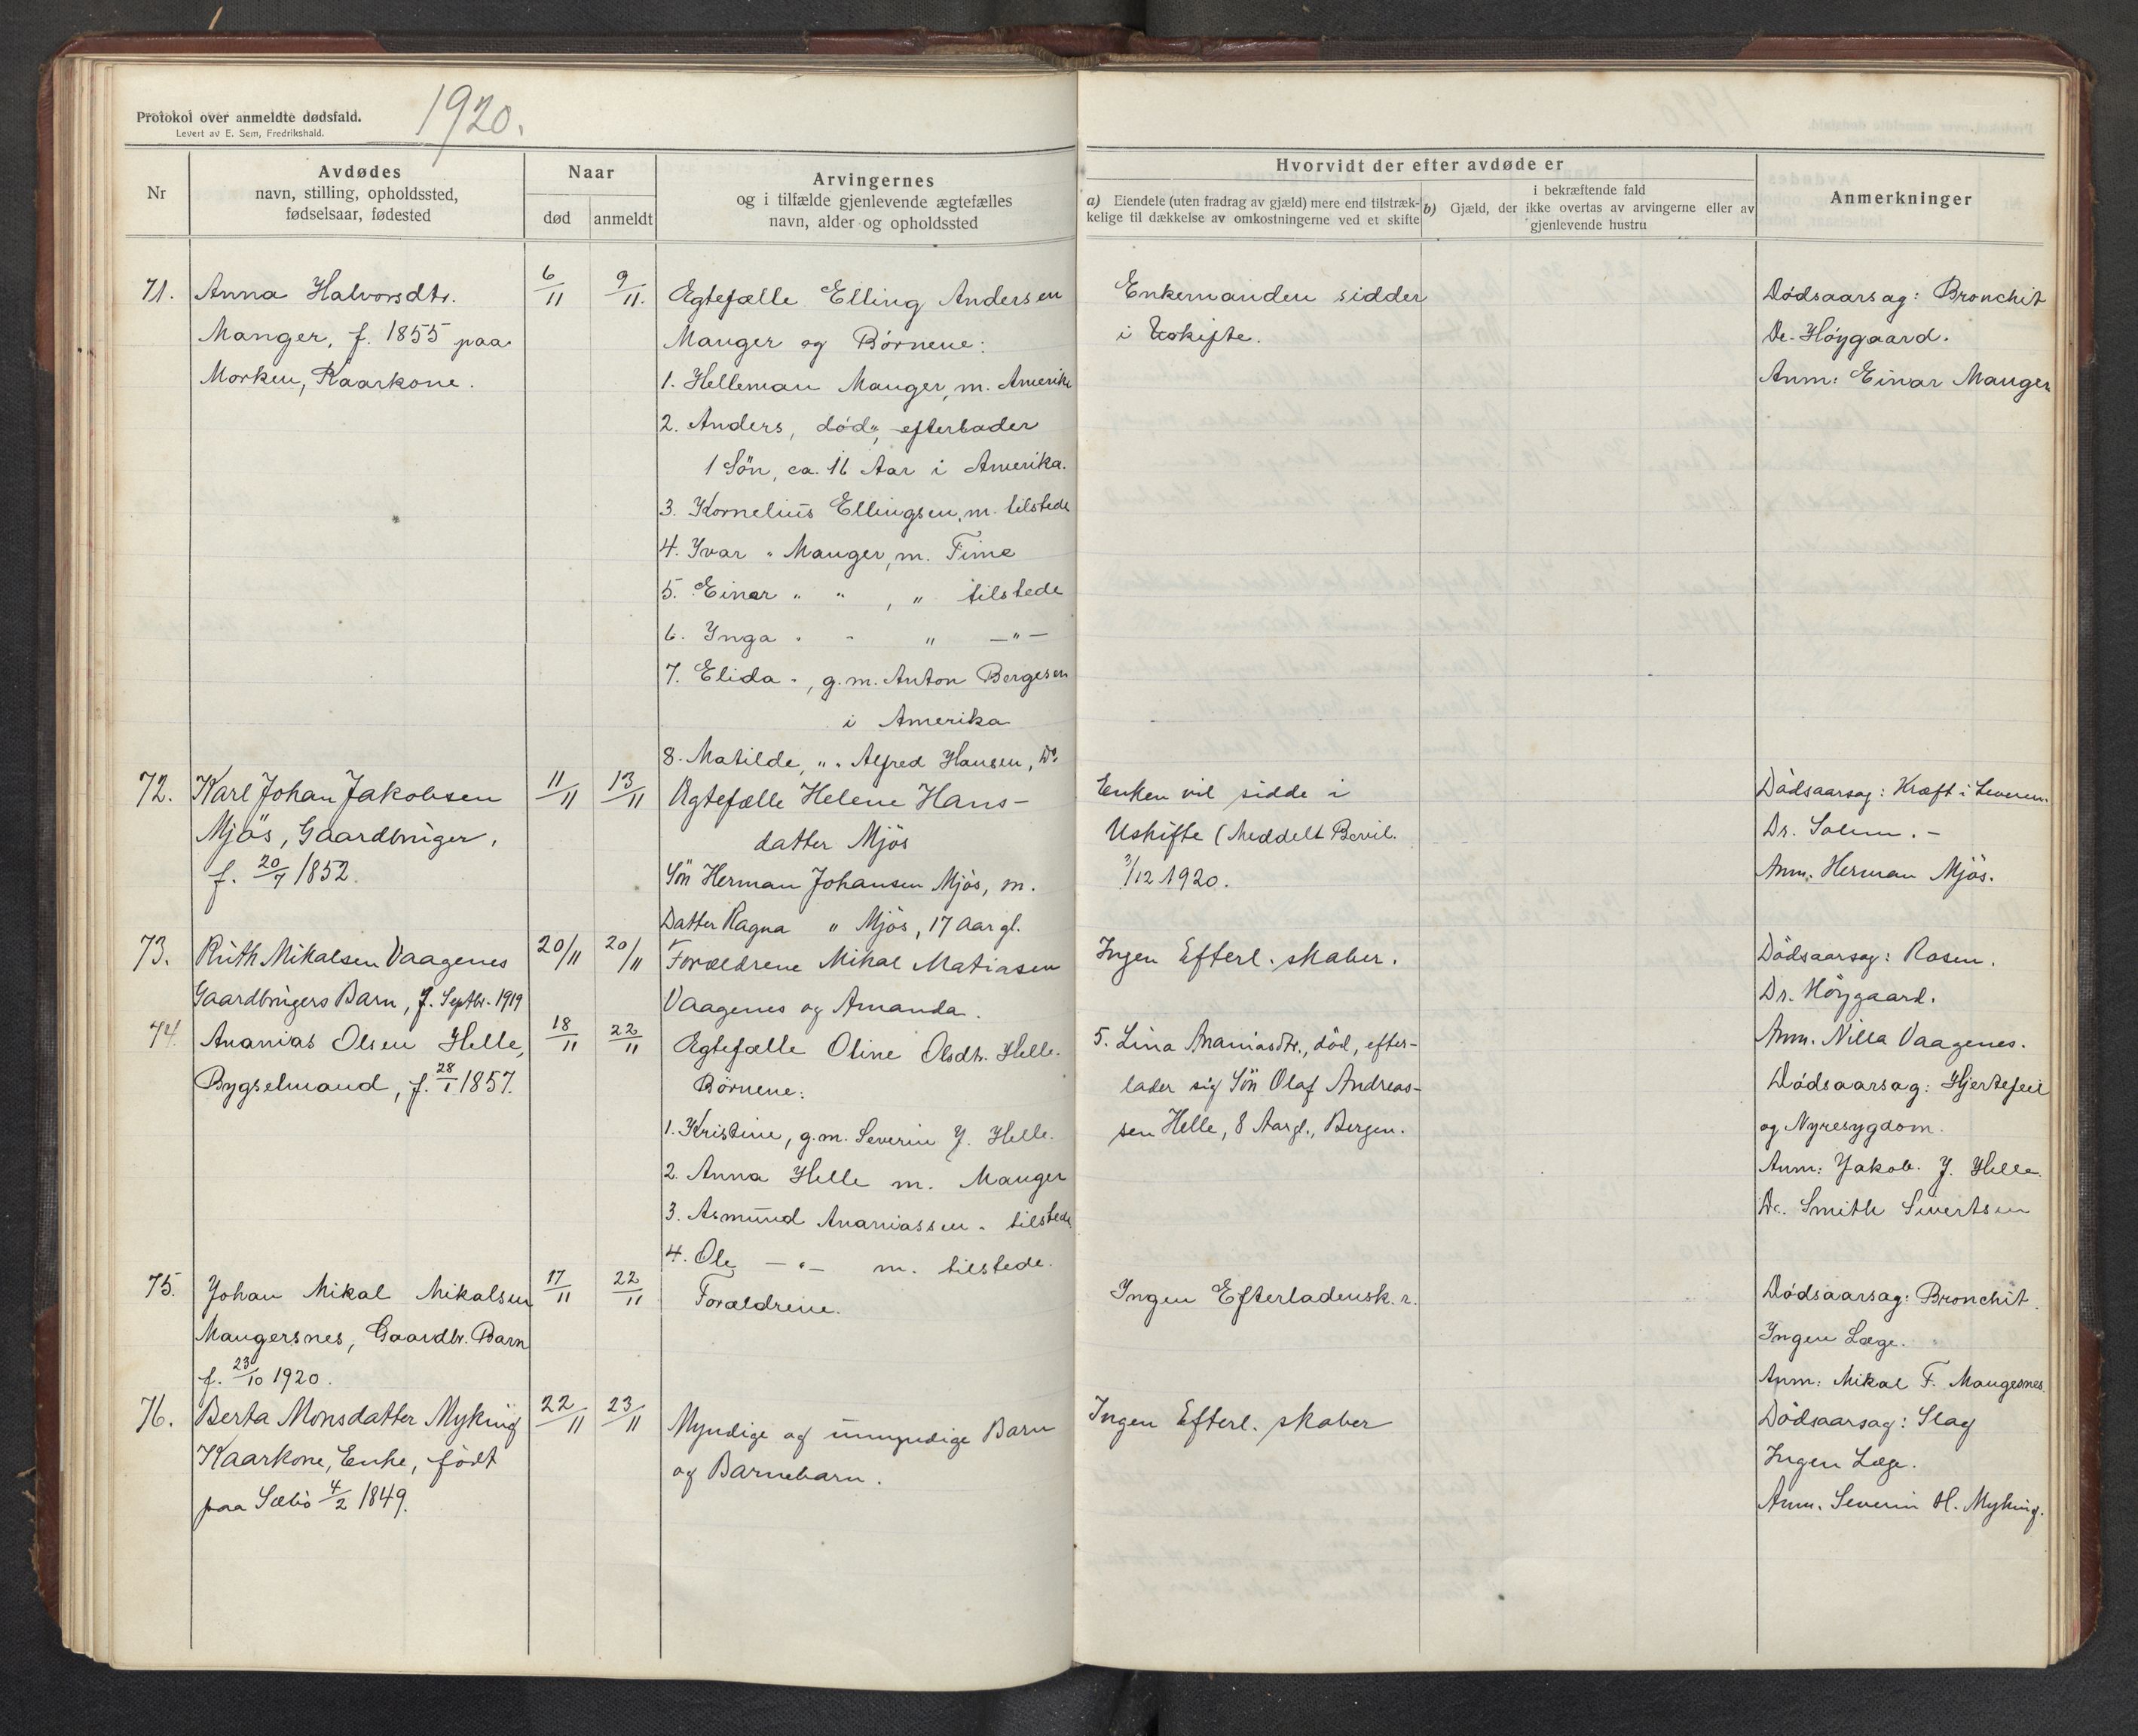 Protokol over anmeldte dødsfald.
Levert av E. Sem, Fredrikshald.
1920.
Nr
Avdødes
navn, stilling, opholdssted,
fødselsaar, fødested
Naar
død
anmeldt
Arvingernes
og i tilfælde gjenlevende ægtefælles
navn, alder og opholdssted
Hvorvidt der efter avdøde er
a) Eiendele (uten fradrag av gjæld) mere end tilstræk-
kelige til dækkelse av omkostningerne ved et skifte
i bekræftende fald
b) Gjæld, der ikke overtas av arvingerne eller av
gjenlevende hustru
Anmerkninger
71.
Anna Halvorsdtr.
Manger, f. 1855 paa
Morken, Kaarkone.
6/11
9/11.
Egtefælle Elling Andersen
Manger og Börnene:
1. Helleman Manger, m. Amerika
2. Anders, död, efterlader
1 Sön, ca. 16 Aar i Amerika.
3. Kornelius Ellingsen, m. tilstede
4. Yvar " Manger, m. Time
5. Einar " " , " tilstede
6. Ynga " " " — " —
7. Elida " , g. m. Anton Bergesen
i Amerika
8. Matilde, " " Alfred Hansen, Do
Enkemanden sidder
i Uskifte.
Dödsaarsag: Bronchit
Dr. Höygaard.
Anm: Einar Manger
72.
Karl Johan Jakobsen
Mjös, Gaardbruger,
f. 20/7 1852.
11/11
13/11
Ægtefælle Helene Hans-
datter Mjös
Sön Herman Johansen Mjös, m.
Datter Ragna " Mjös, 17 Aar gl.
Enken vil sidde i
Uskifte (Meddelt Bevil.
3/12 1920.
Dödsaarsag: Kræft i Leveren.
Dr. Solem. -
Anm. Herman Mjös.
73.
Ruth Mikalsen Vaagenes
Gaardbrugers Barn, f. Septbr. 1919
20/11
20/11
Forældrene Mikal Matiasen
Vaagenes og Amanda.
Ingen Efterl. skaber.
Dödsaarsag: Rosen.
Dr. Höygaard.
Anm. Nilla Vaagenes.
74.
Ananias Olsen Helle,
Bygselmand, f. 28/1 1857.
18/11
22/11
Egtefælle Oline Olsdtr. Helle.
Börnene:
1. Kristine, g. m. Severin J. Helle.
2. Anna Helle m. Manger
3. Asmund Ananiassen " tilstede
4. Ole — " — m. tilstede.
5. Lina Ananiasdtr., död, efter-
lader sig Sön Olaf Andreas-
sen Helle, 8 Aar gl., Bergen.
Dödsaarsag: Hjertefeil
og Nyresygdom.
Anm: Jakob J. Helle.
Dr. Smith Sivertsen
75.
Johan Mikal Mikalsen
Mangersnes, Gaardbr. Barn
f. 23/10 1920.
17/11
22/11
Forældrene.
Ingen Efterladensk. r.
Dödsaarsag: Bronchit.
Yngen Læge.
Anm: Mikal F. Mangersnes.
76.
Berta Monsdatter Myking
Kaarkone, Enke, födt
paa Sæbö 4/2 1849.
22/11
23/11
Myndige og umyndige Barn
og Barnebarn.
Ingen Efterl. skaber
Dödsaarsag: Slag
Ingen Læge.
Anm. Severin H. Myking.